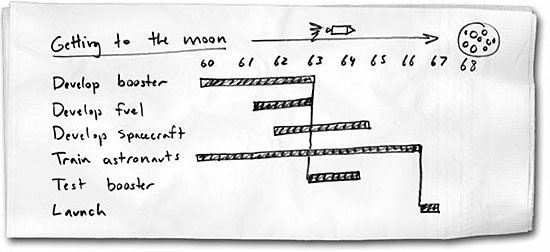 Getting to the moon
60 61 62 63 64 65 66 67 68
Develop booster
Develop fuel
Develop spacecraft
Train astronauts
Test booster
Launch